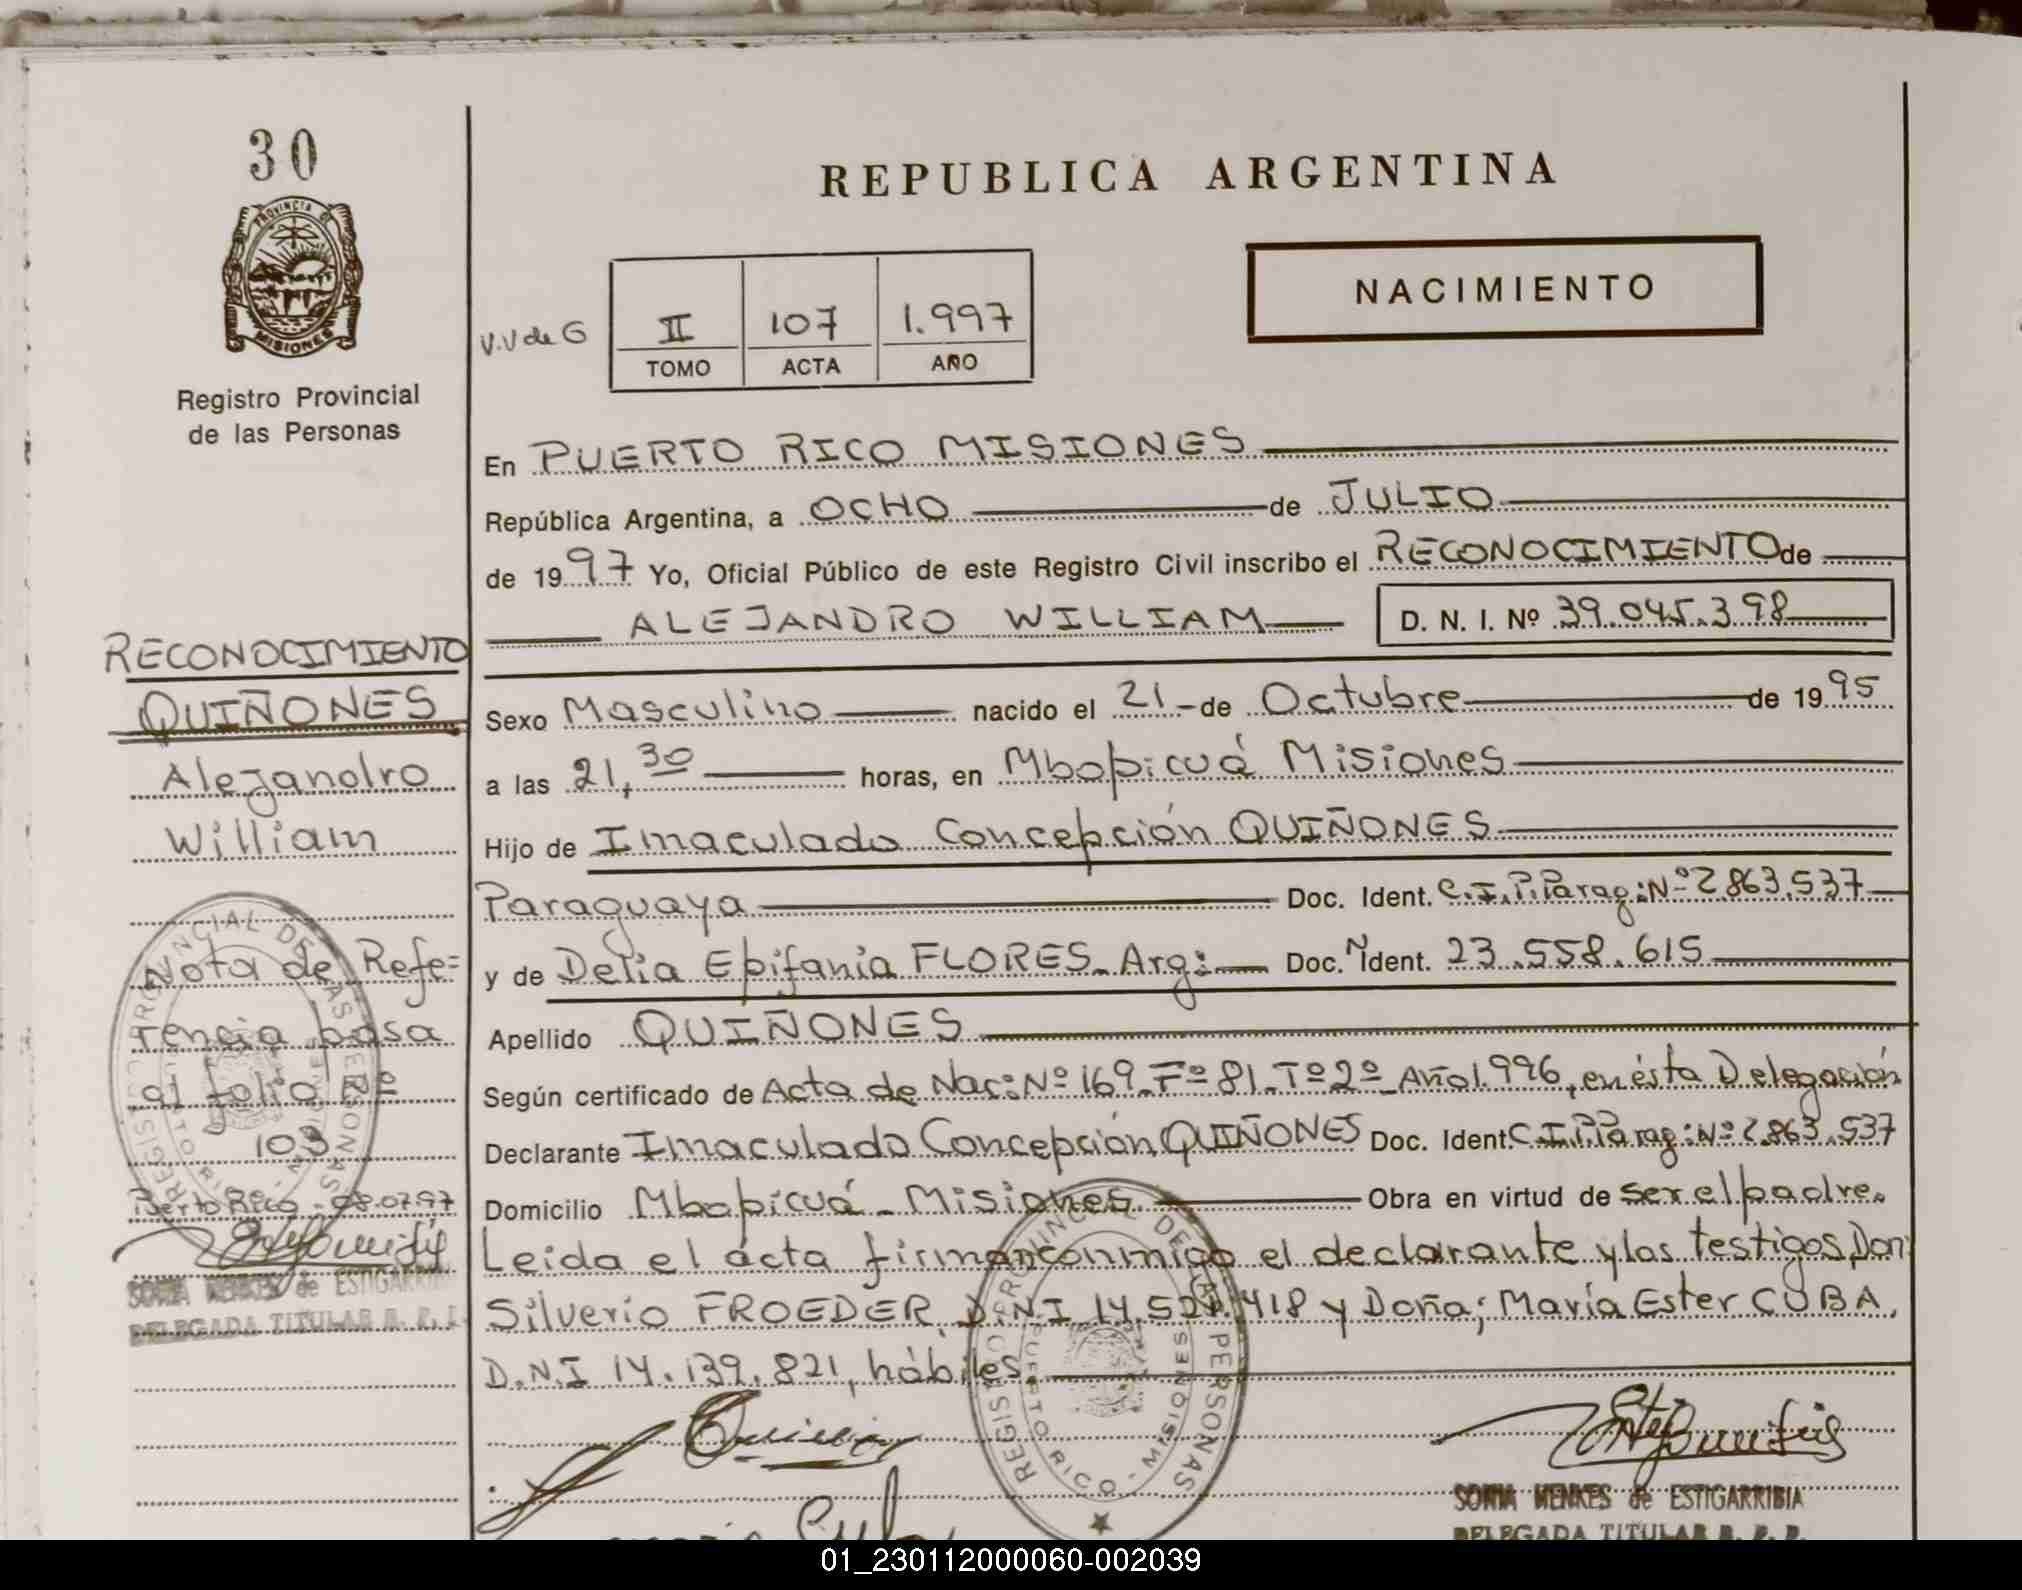 30
PROVINCIA DE
MISIONES
Registro Provincial
de las Personas
REPUBLICA ARGENTINA
NACIMIENTO
V.V de G
II 107 1.997
TOMO ACTA AÑO
En PUERTO RICO MISIONES
República Argentina, a OCHO de JULIO
de 1997 Yo, Oficial Público de este Registro Civil inscribo el RECONOCIMIENTO de
ALEJANDRO WILLIAM D. N. I. Nº 39.045.398
Sexo Masculino nacido el 21 - de Octubre de 1995
a las 21,30 horas, en Mbopicuá Misiones
Hijo de Imaculado Concepción QUIÑONES
Paraguaya Doc. Ident. C.I.P.Parag: Nº 2863.537
y de Delia Epifania FLORES. Arg: Doc. N Ident. 23.558.615
Apellido QUIÑONES
Según certificado de Acta de Nac: Nº 169. Fº 81. Tº 2º Año 1.996, en ésta Delegación
Declarante Imaculado Concepción QUIÑONES Doc. Ident. C.I.P.Parag: Nº 2.863.537
Domicilio Mbopicuá - Misiones. Obra en virtud de ser el padre.
Leida el ácta firman conmigo el declarante y los testigos, Don:
Silverio FROEDER, D.N.I 14.527.418 y Doña; María Ester CUBA,
D.N.I 14.139.821, hábiles.
RECONOCIMIENTO
QUIÑONES
Alejandro
William
Nota de Refe=
rencia pasa
al folio Nº
103
Pierto Rico - 08.07.97
SONIA MENKES de ESTIGARRIBIA
DELEGADA TITULAR R. P. P.
REGISTRO PROVINCIAL DE LAS PERSONAS
PUERTO RICO - MISIONES
REGISTRO PROVINCIAL DE LAS PERSONAS
PUERTO RICO - MISIONES
SONIA MENKES de ESTIGARRIBIA
DELEGADA TITULAR R. P. P.
01_230112000060-002039